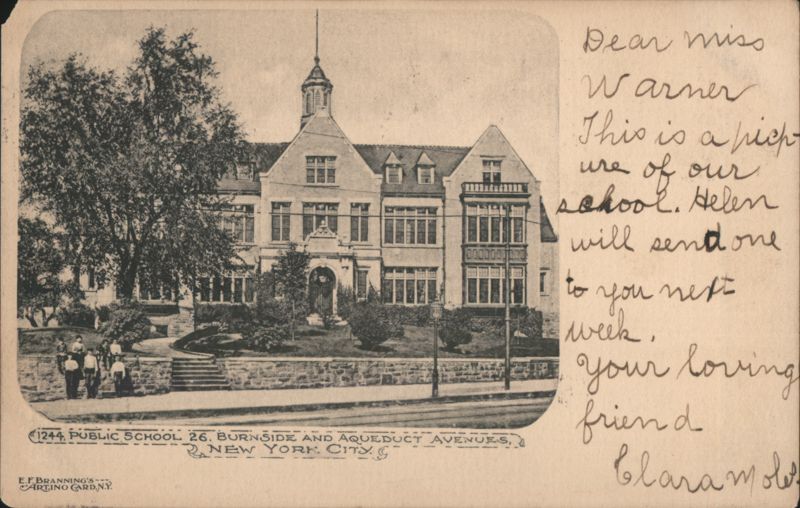 Dear miss
Warner
This is a picp-
ure of our
school. Helen
will send one
to you next
week.
Your loving
friend
Clara
1244. PUBLIC SCHOOL 26. BURNSIDE AND AQUEDUCT AVENUES,
NEW YORK CITY.
E.F. BRANNING'S
ARTINO CARD, N.Y.